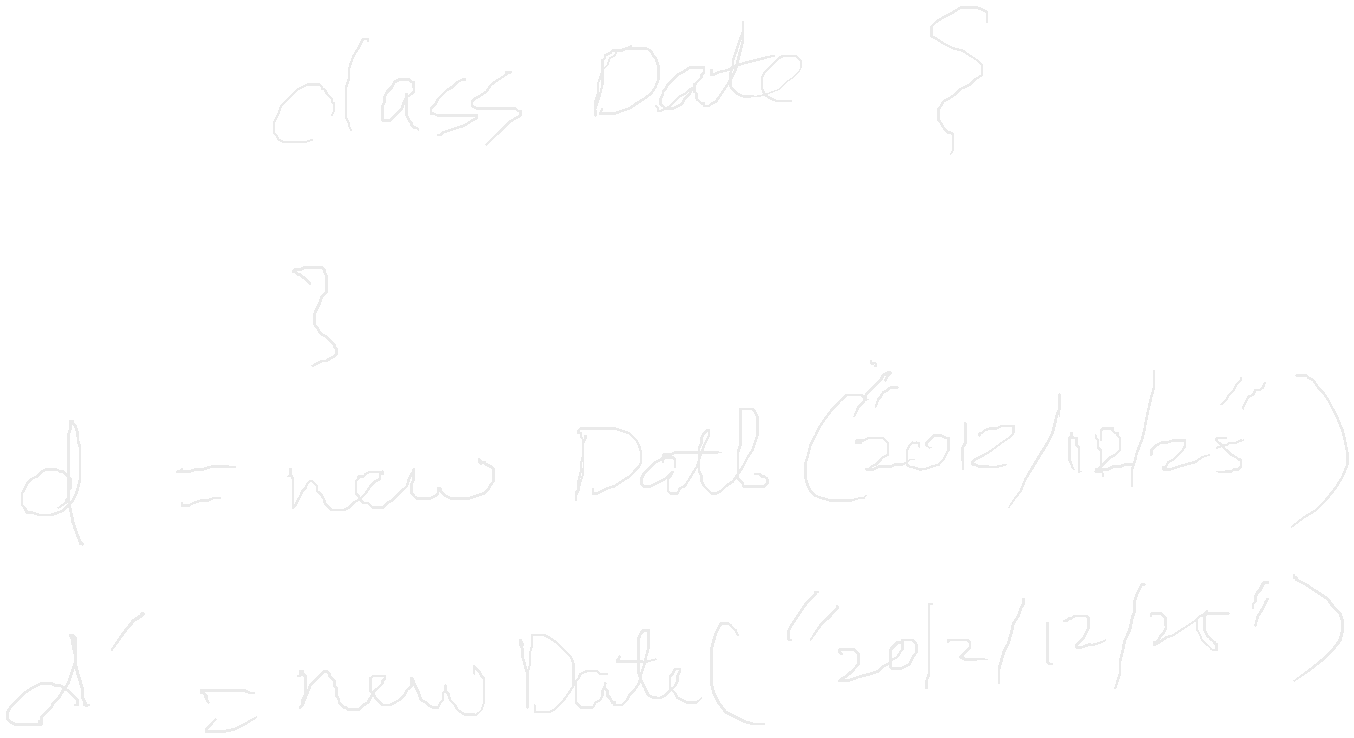 class Date {
}
d = new Date("2012/12/25")
d' = new Date("2012/12/25")